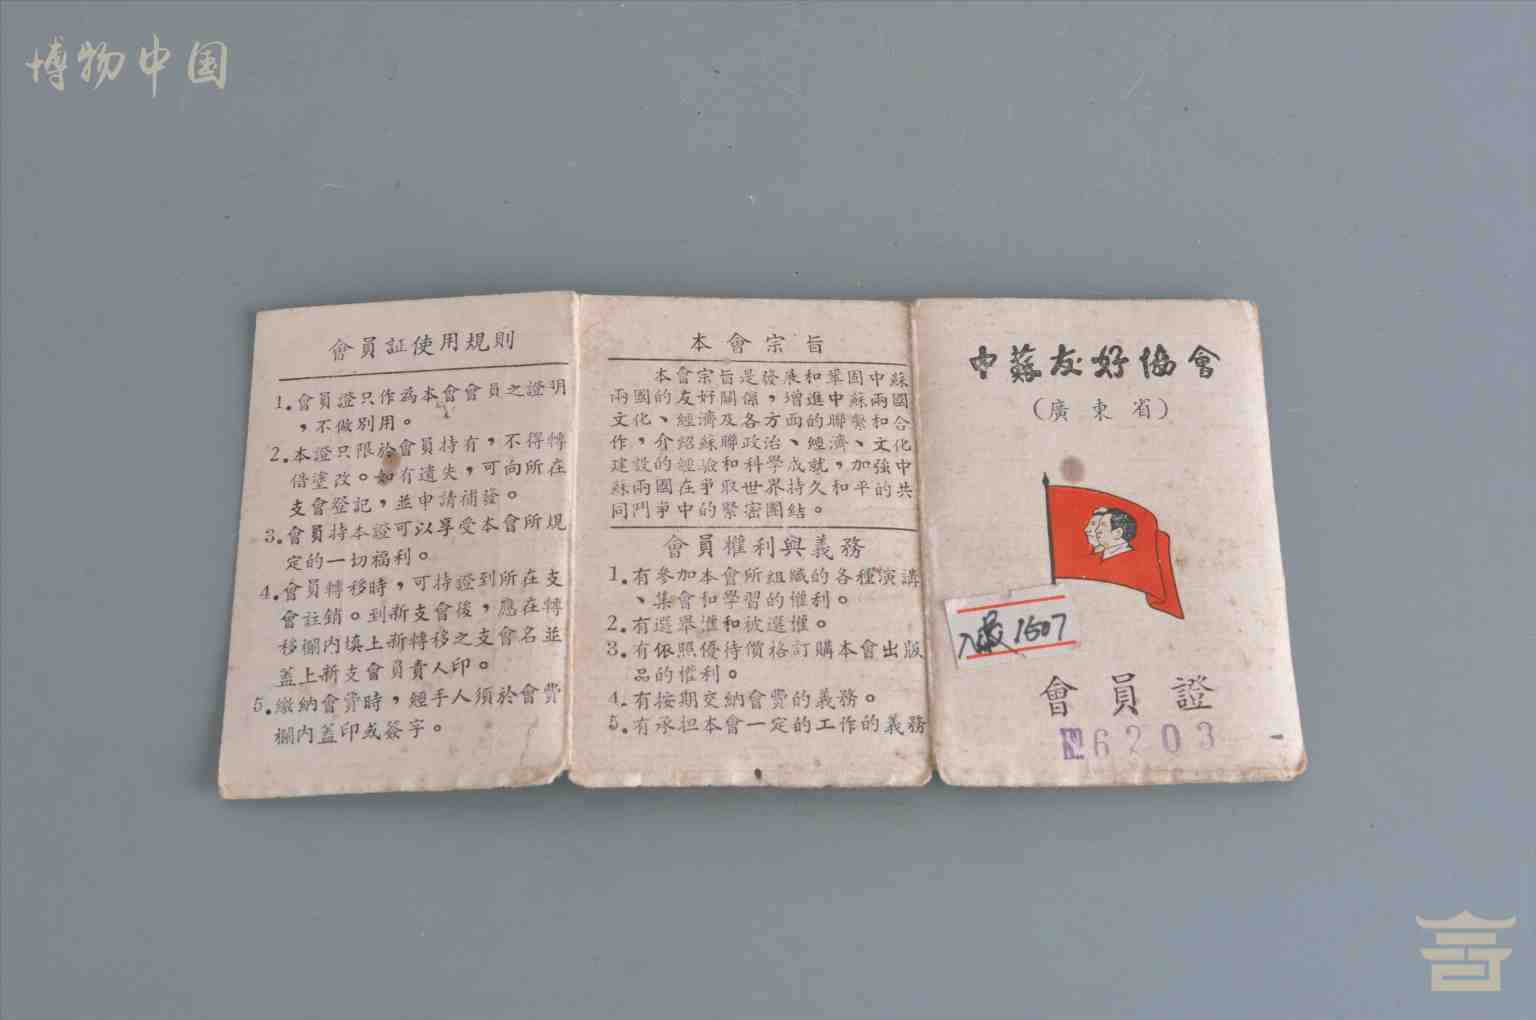 博物中国
會員証使用規則
1.會員證只作為本會會員之證明
，不做别用。
2.本證只限於會員持有，不得轉
借塗改。如有遺失，可向所在
支會登記，並申請補發。
3.會員持本證可以享受本會所規
定的一切福利。
4.會員轉移時，可持證到所在支
會註銷。到新支會後，應在轉
移欄內填上新轉移之支會名並
蓋上新支會負責人印。
5.繳納會費時，經手人須於會費
欄內蓋印或簽字。
本會宗旨
本會宗旨是發展和鞏固中蘇
兩國的友好關係，增進中蘇兩國
文化、經濟及各方面的聯繫和合
作，介紹蘇聯政治、經濟、文化
建設的經驗和科學成就，加強中
蘇兩國在爭取世界持久和平的共
同鬥爭中的緊密團結。
會員權利與義務
1.有參加本會所組織的各種演講
、集會和學習的權利。
2.有選舉權和被選權。
3.有依照優待價格訂購本會出版
品的權利。
4.有按期交納會費的義務。
5.有承担本會一定的工作的義務
中蘇友好協會
（廣東省）
入藏1507
會員證
6203